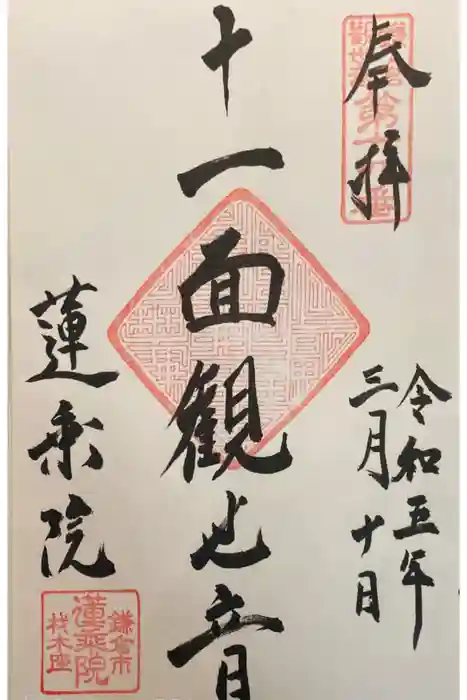 奉拝
令和五年
三月十日
十一面観世音
蓮乗院
鎌倉市
蓮乗院
材木座